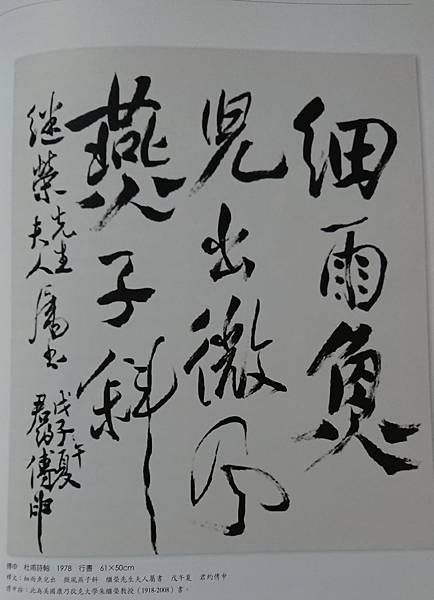 細雨魚
兒出微風
燕子斜
継榮先生
夫人屬书
戊子午夏
君約傅申
傅申 杜甫詩軸 1978 行書 61×50cm
釋文：細雨魚兒出 微風燕子斜 繼榮先生夫人屬書 戊午夏 君約傅申
傅申論：此為美國康乃狄克大學朱繼榮教授（1918-2008）書。